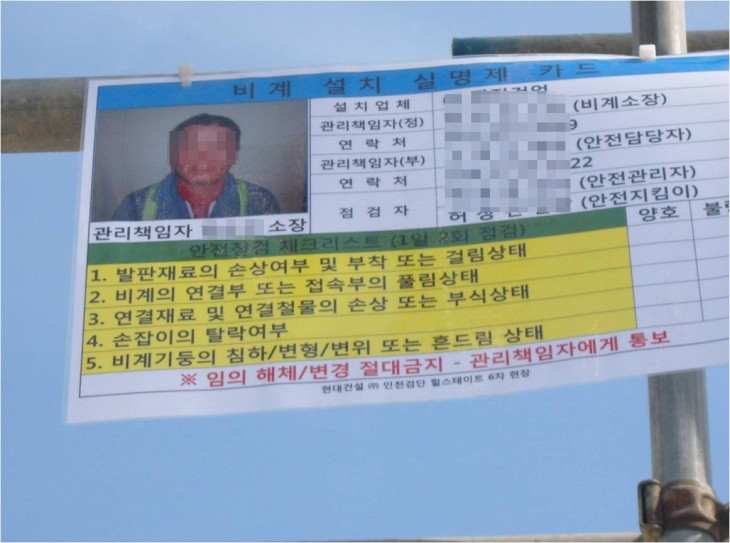 비계 설치 실명제 카드
설치업체
(비계소장)
관리책임자(정) 9
연락처 (안전담당자)
관리책임자(부) 22
연락처 (안전관리자)
점검자 (안전지킴이)
관리책임자 소장
안전점검 체크리스트 (1일 2회 점검) 양호
1. 발판재료의 손상여부 및 부착 또는 걸림상태
2. 비계의 연결부 또는 접속부의 풀림상태
3. 연결재료 및 연결철물의 손상 또는 부식상태
4. 손잡이의 탈락여부
5. 비계기둥의 침하/변형/변위 또는 흔드림 상태
※ 임의 해체/변경 절대금지 - 관리책임자에게 통보
현대건설 ㈜ 인천검단 힐스테이트 6차 현장